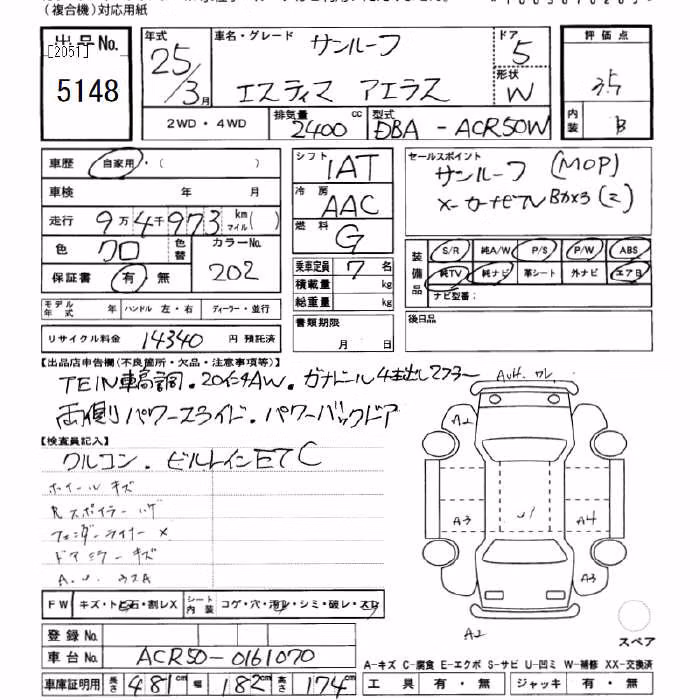 （複合機）対応用紙
出品No.
[2051]
5148
年式
25/3月
車名・グレード
サンルーフ
エスティマ アエラス
ドア
5
形状
W
評価点
3.5
内装
B
2WD・4WD
排気量
2400cc
型式
DBA-ACR50W
車歴
自家用・（ ）
車検 年 月
走行
9万4千973km
マイル( )
色
クロ
色替
カラーNo.
202
保証書 有・無
シフト
IAT
冷房
AAC
燃料
G
乗車定員 7名
積載量 kg
総重量 kg
セールスポイント
サンルーフ (MOP)
メーカーナビTV Bカメラ(ミ)
装備品
S/R 純A/W P/S P/W ABS
純TV 純ナビ 革シート 外ナビ エアB
ナビ型番：
モデル年式 年 ハンドル 左・右 ディーラー・並行
リサイクル料金 14340円 預託済
書類期限
月 日
後日品
【出品店申告欄（不良箇所・欠品・注意事項等）】
TEIN車高調. 20インチAW. ガナドール4本出しマフラー
両側パワースライド. パワーバックドア
【検査員記入】
クルコン. ビルトインETC
ホイールキズ
Rスポイラーハゲ
フェンダーライナー×
ドアミラーキズ
A.U.
A2
A3
U1
A4
A3
A2
FW キズ・トビ石・割レX
シート内装 コゲ・穴・汚レ・シミ・破レ・スレ
登録No.
車台No. ACR50-0161070
車庫証明用 長さ 481cm 幅 182cm 高さ 174cm
スペア
A－キズ C－腐食 E－エクボ S－サビ U－凹ミ W－補修 XX－交換済
工具 有・無 ジャッキ 有・無